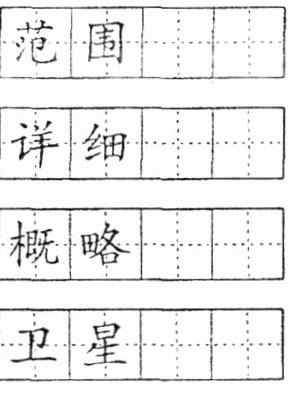 范围
详细
概略
卫星